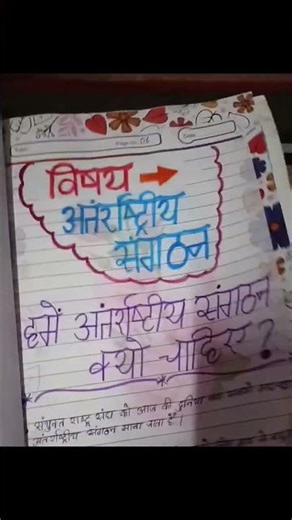 विषय →
अतंर्राष्ट्रीय
संगठन
हमें अंतर्राष्टीय संगठन
क्यो चाहिए ?
संयुक्त राष्ट्र संघ को आज की दुनिया का सबसे
अंतर्राष्ट्रीय संगठन माना जाता है ।